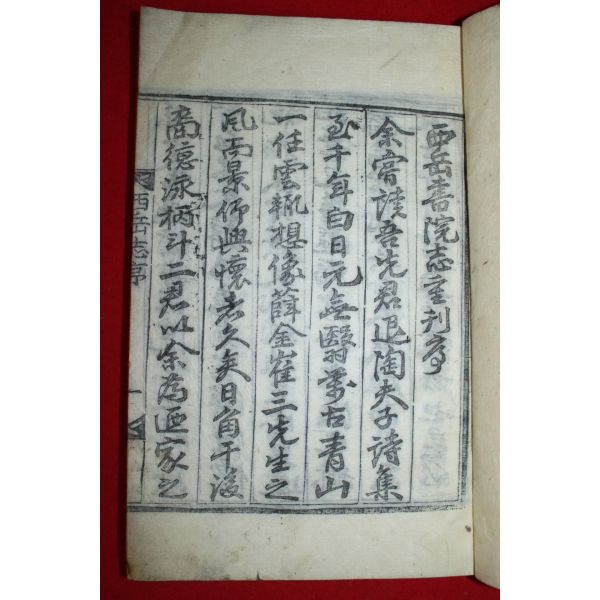 西岳書院志重刊序
余嘗讀吾先君退陶夫子詩集
至千年白日元無翳萬古青山
一任雲輒想像薛金崔三先生之
風而景仰興懷者久矣日角干後
裔德泳柄斗二君以余為迺家之
西岳志序
一